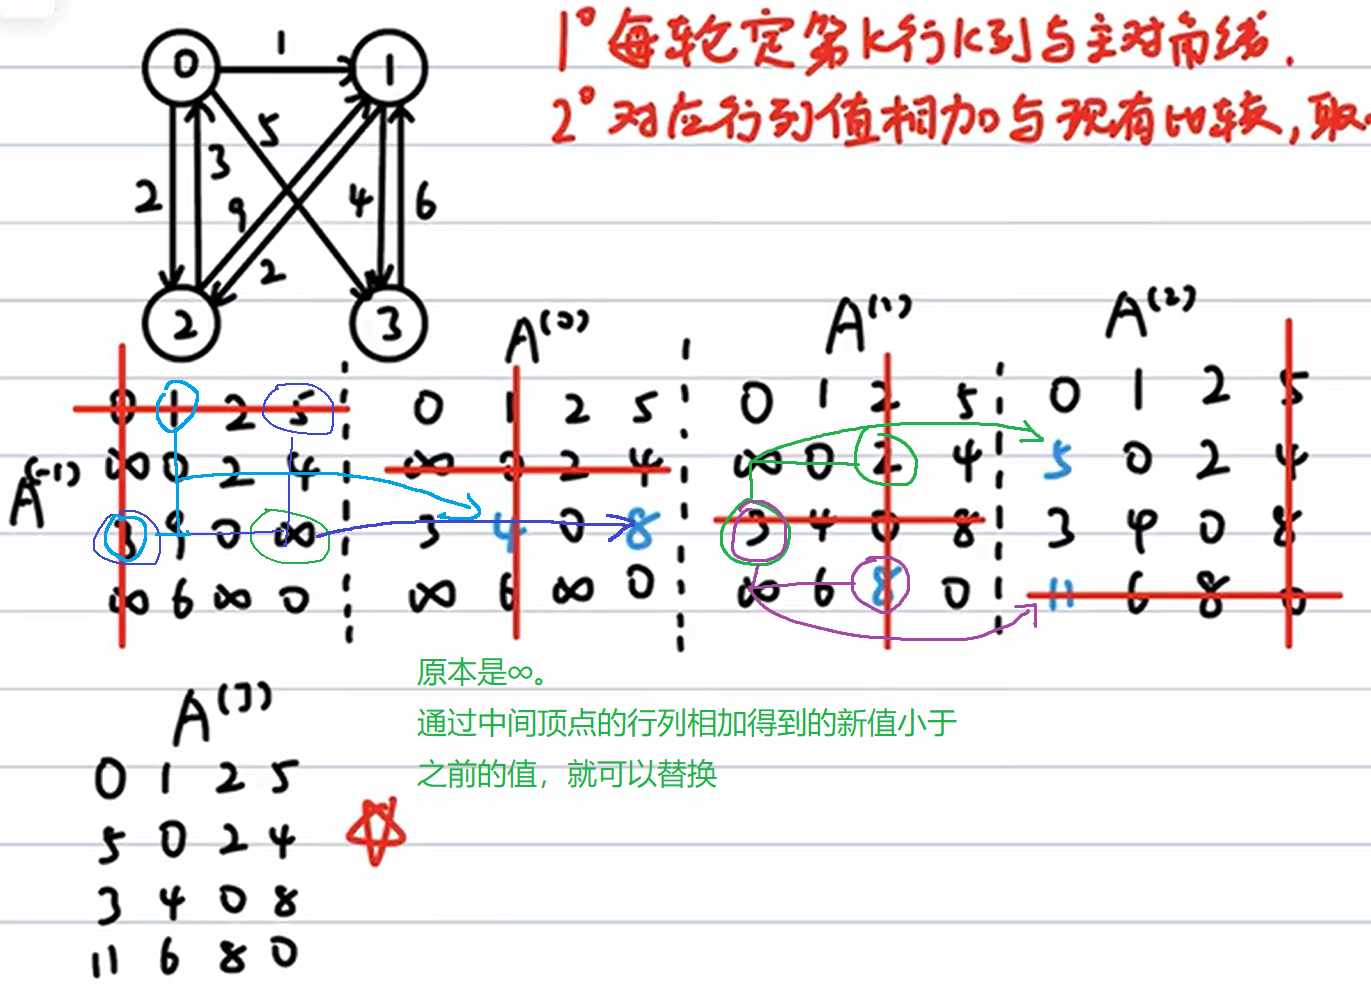 1° 每轮定第K行K列与主对角线.
2° 对应行列值相加与现有比较,取
0 1
1
5
3
2 9 4 6
2
2 3
A(-1)
0 1 2 5
∞ 0 2 4
3 9 0 ∞
∞ 6 ∞ 0
A(0)
0 1 2 5
∞ 0 2 4
3 4 0 8
∞ 6 ∞ 0
A(1)
0 1 2 5
∞ 0 2 4
3 4 0 8
∞ 6 8 0
A(2)
0 1 2 5
5 0 2 4
3 4 0 8
11 6 8 0
原本是∞。
通过中间顶点的行列相加得到的新值小于
之前的值，就可以替换
A(3)
0 1 2 5
5 0 2 4
3 4 0 8
11 6 8 0